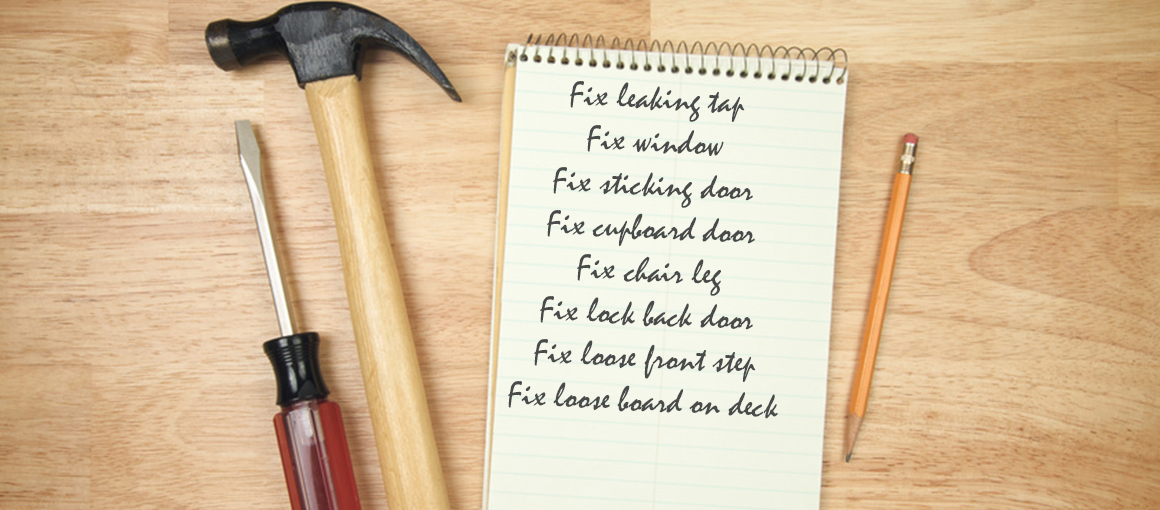 Fix leaking tap
Fix window
Fix sticking door
Fix cupboard door
Fix chair leg
Fix lock back door
Fix loose front step
Fix loose board on deck